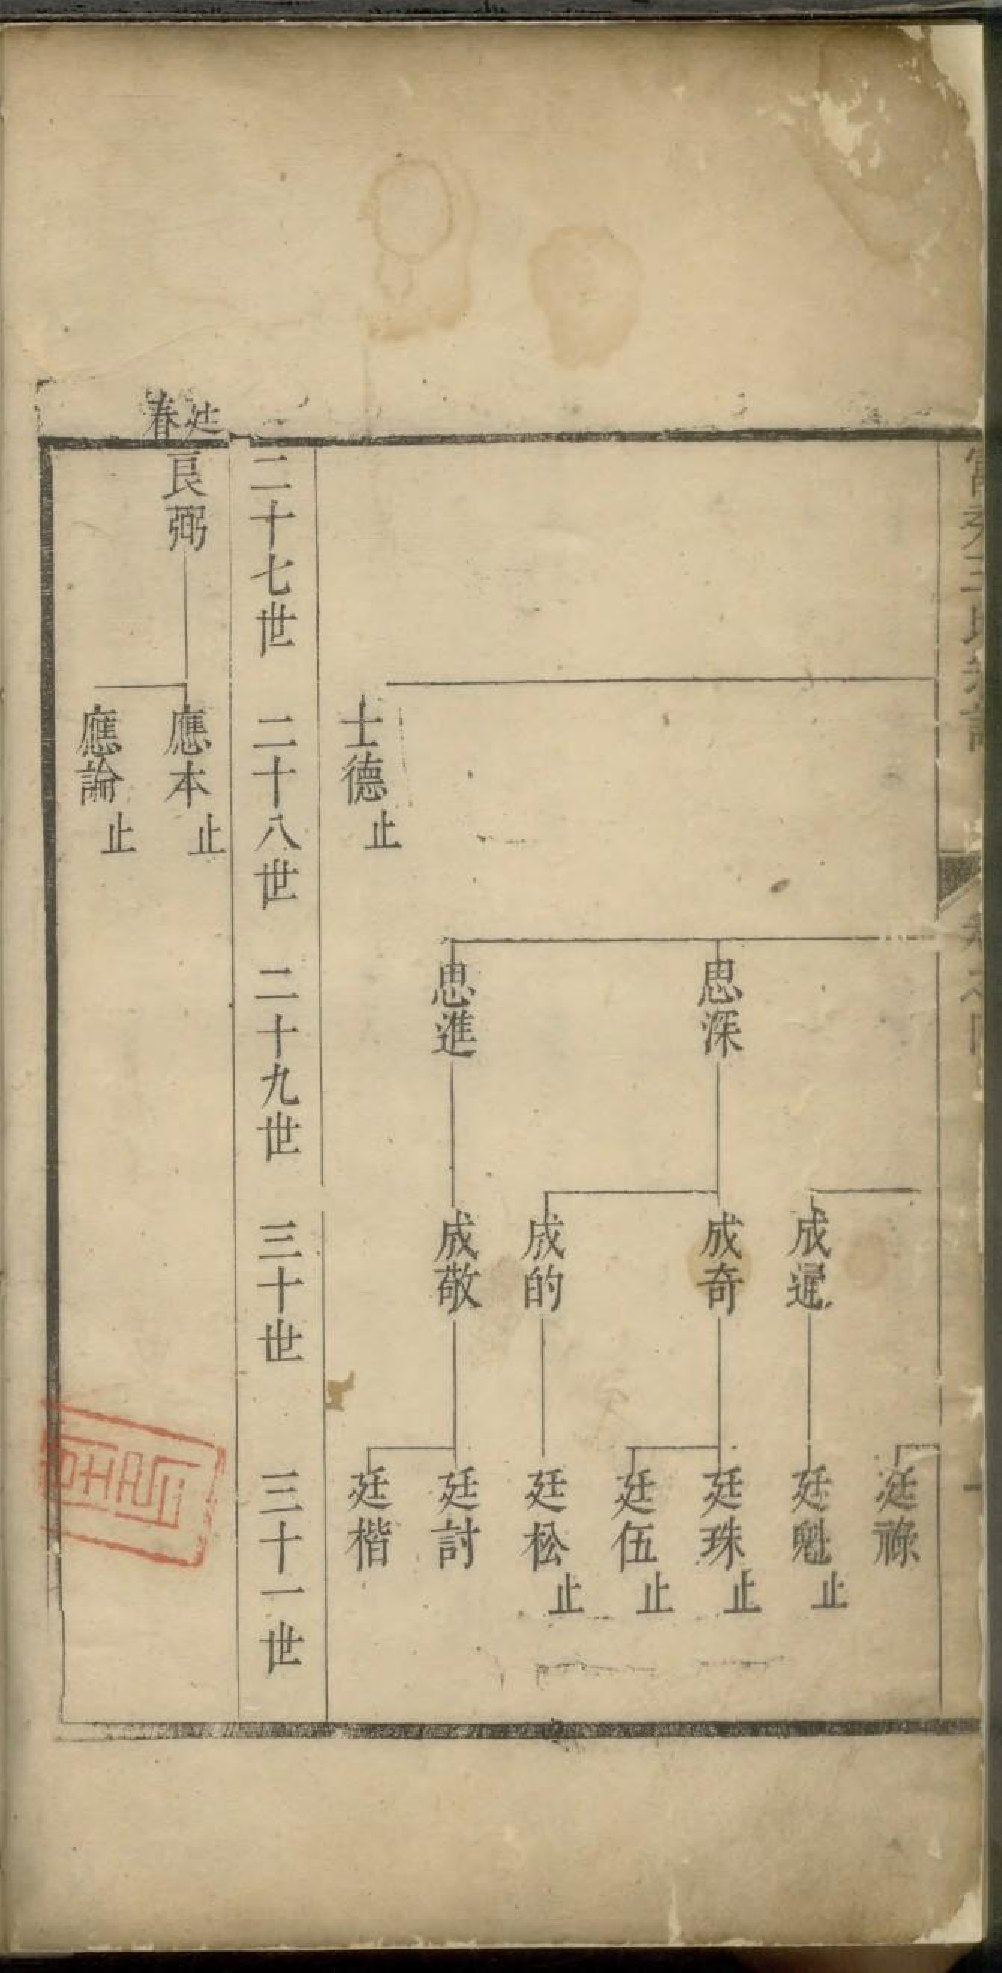 廷祿
成暹
廷魁 止
思深
成奇
廷珠 止
廷伍 止
成的
廷松 止
思進
成敬
廷討
廷楷
士德 止
二十七世 二十八世 二十九世 三十世 三十一世
廷春
良弼
應本 止
應論 止